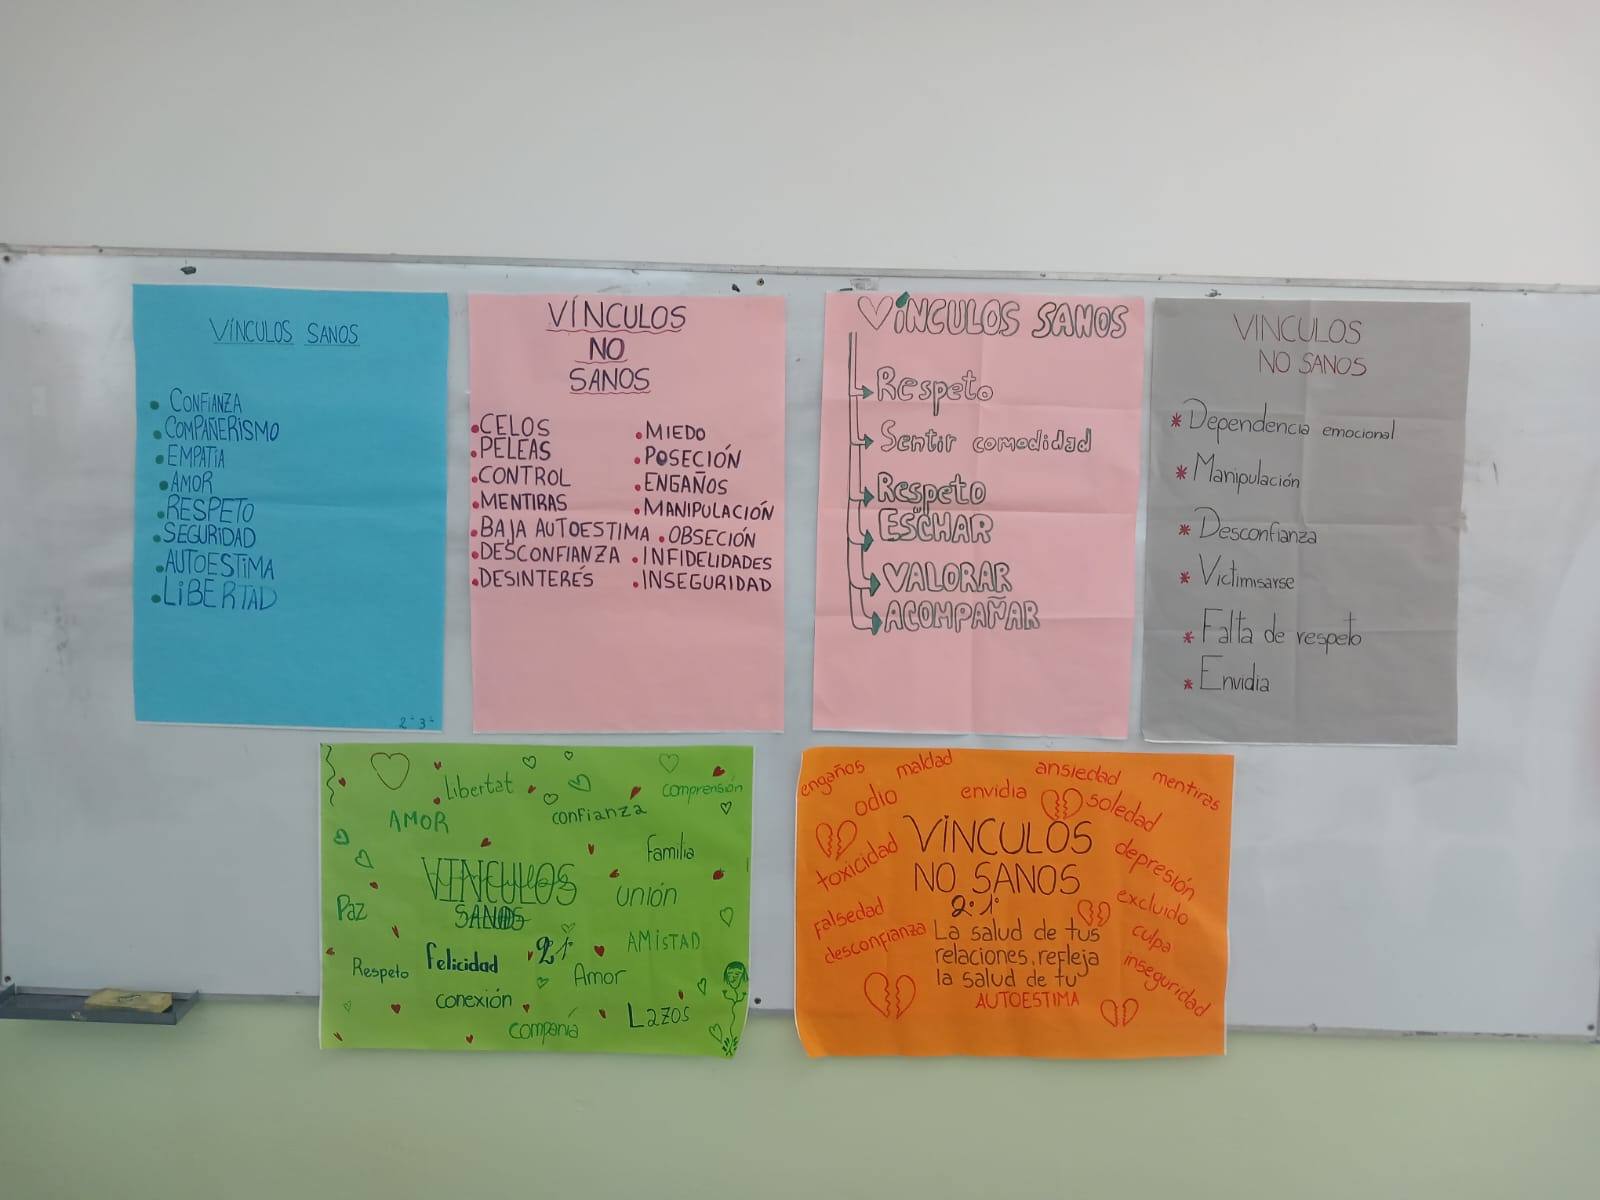 VÍNCULOS SANOS
CONFIANZA
COMPAÑERISMO
EMPATIA
AMOR
RESPETO
SEGURIDAD
AUTOESTIMA
LIBERTAD
2° 3°
VÍNCULOS
NO
SANOS
CELOS
PELEAS
CONTROL
MENTIRAS
BAJA AUTOESTIMA
DESCONFIANZA
DESINTERÉS
MIEDO
POSECIÓN
ENGAÑOS
MANIPULACIÓN
OBSECIÓN
INFIDELIDADES
INSEGURIDAD
VÍNCULOS SANOS
Respeto
Sentir comodidad
Respeto
ESCUCHAR
VALORAR
ACOMPAÑAR
VINCULOS
NO SANOS
Dependencia emocional
Manipulación
Desconfianza
Victimisarse
Falta de respeto
Envidia
Libertat
comprensión
AMOR
confianza
Familia
VINCULOS
SANOS
unión
Paz
2°1°
AMISTAD
Respeto
felicidad
Amor
conexión
Lazos
compañía
engaños
maldad
ansiedad
mentiras
odio
envidia
soledad
toxicidad
VÍNCULOS
NO SANOS
depresión
2° 1°
excluido
falsedad
desconfianza
La salud de tus
relaciones, refleja
la salud de tu
AUTOESTIMA
culpa
inseguridad